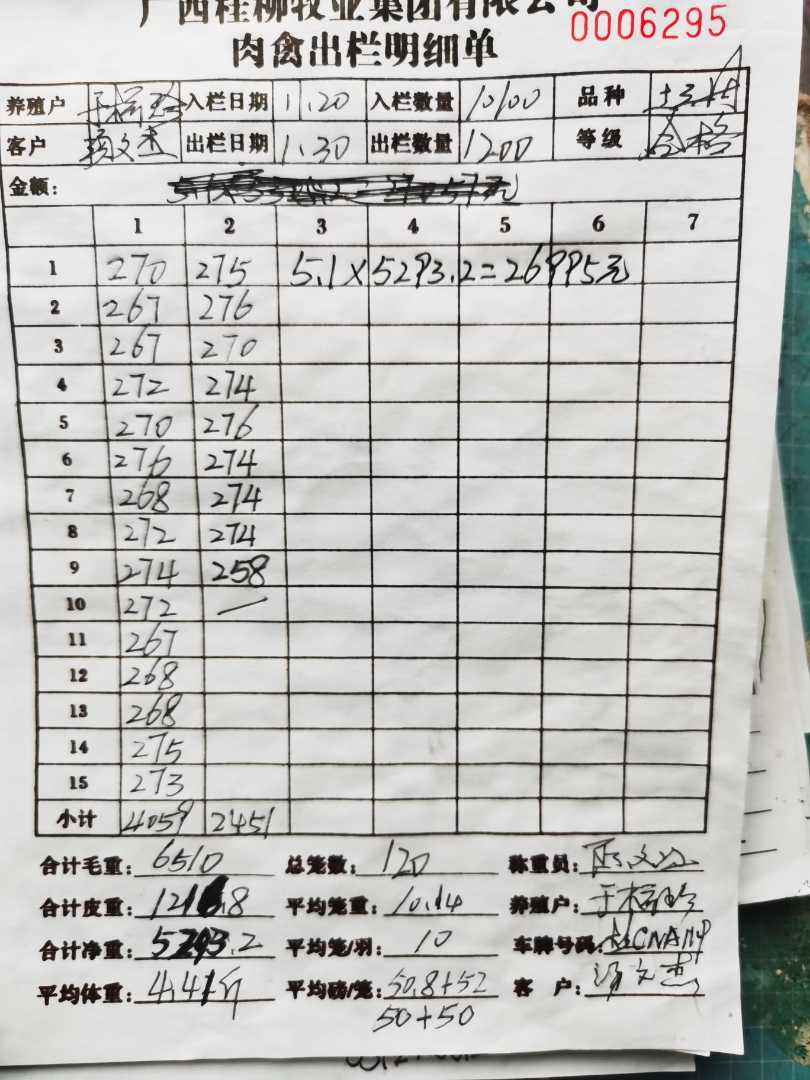 广西桂柳牧业集团有限公司
0006295
肉禽出栏明细单
养殖户 入栏日期 11.20 入栏数量 10100 品种
客户 文杰 出栏日期 1.30 出栏数量 1200 等级 合格
金额:
1 2 3 4 5 6 7
1 270 275 5.1×5293.2=26995元
2 267 276
3 267 270
4 272 274
5 270 276
6 276 274
7 268 274
8 272 274
9 274 258
10 272 —
11 267
12 268
13 268
14 275
15 273
小计 4059 2451
合计毛重: 6510 总笼数: 120 称重员:
合计皮重: 1216.8 平均笼重: 10.14 养殖户:
合计净重: 5293.2 平均笼/羽: 10 车牌号码:
平均体重: 4.41斤 平均磅/笼: 50.8+52 客户: 文杰
50+50